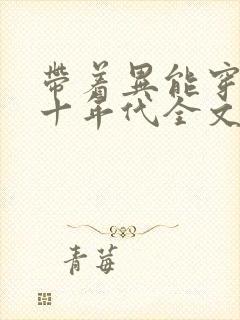 帶着異能穿
十年代全文
青莓